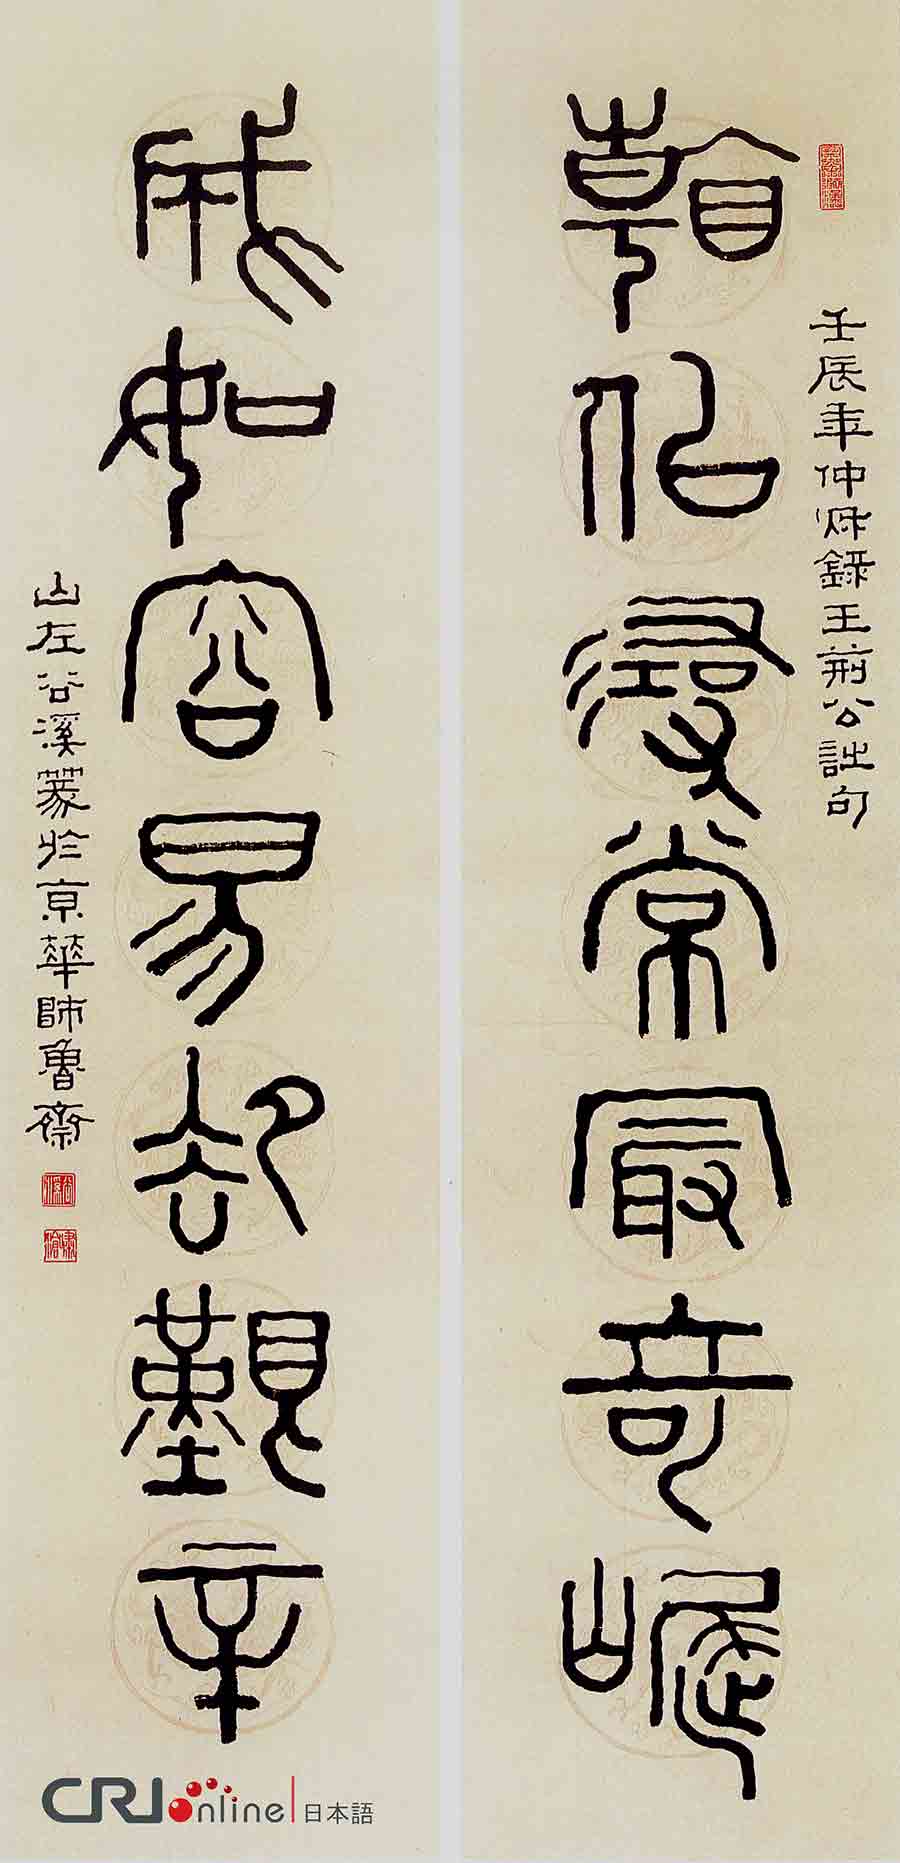 壬辰年仲秌録王荊公詩句
㸔侣尋常冣奇崛
成如容易却艱辛
山左谷溪篆於京華師魯齋
CRIonline 日本語